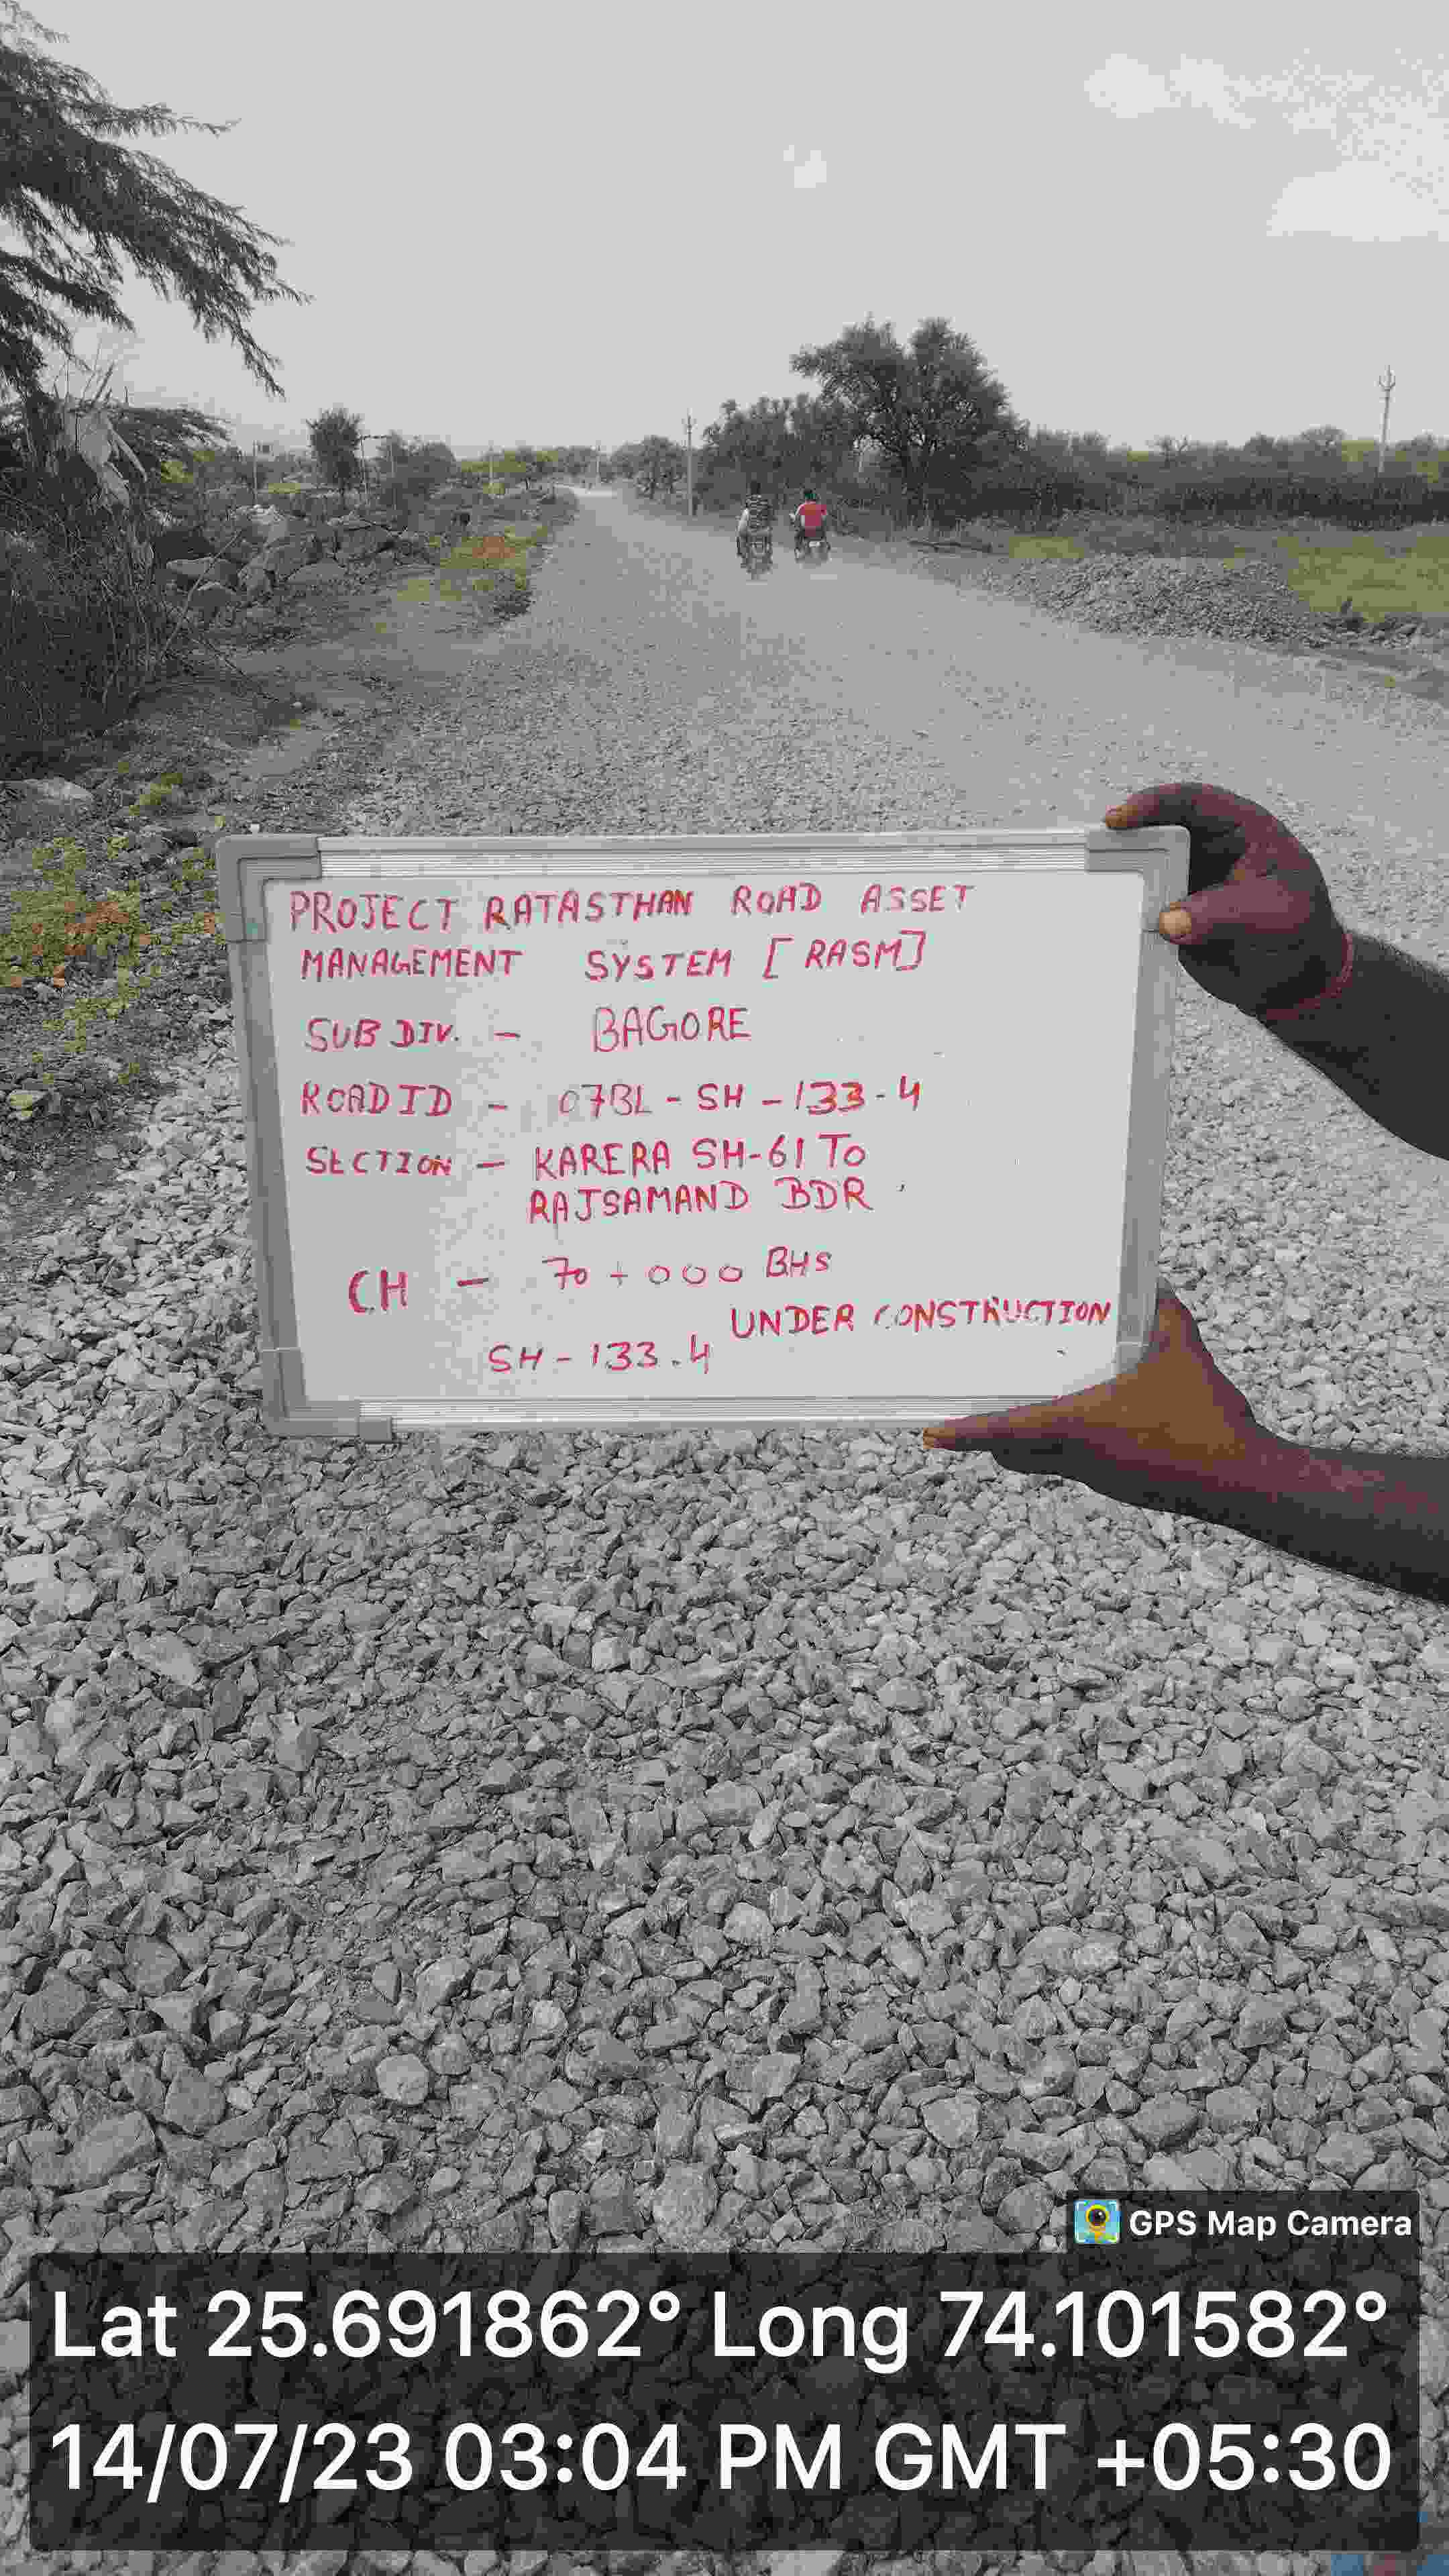 PROJECT RATASTHAN ROAD ASSET
MANAGEMENT SYSTEM [RASM]
SUB DIV. - BAGORE
ROAD ID - 07BL-SH-133-4
SECTION - KARERA SH-61 To
RAJSAMAND BDR
CH - 70+000 BHS
UNDER CONSTRUCTION
SH-133.4
GPS Map Camera
Lat 25.691862° Long 74.101582°
14/07/23 03:04 PM GMT +05:30